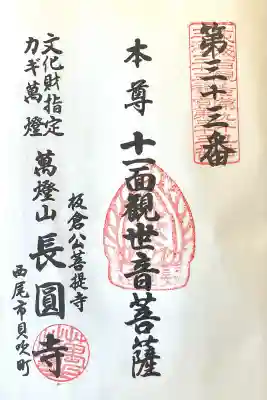 第三十三番
本尊 十一面観世音菩薩
文化財指定
カギ萬燈
板倉公菩提寺
萬燈山 長圓寺
西尾市貝吹町